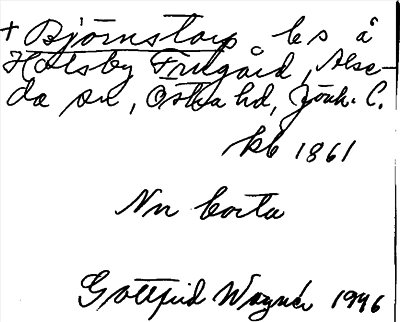 + Björnstorp ls å
Holsby Frugård, Alse-
da sn, Östra hd, Jönk. C.
kb 1861
Nn borta
Gottfrid Wagnér 1946